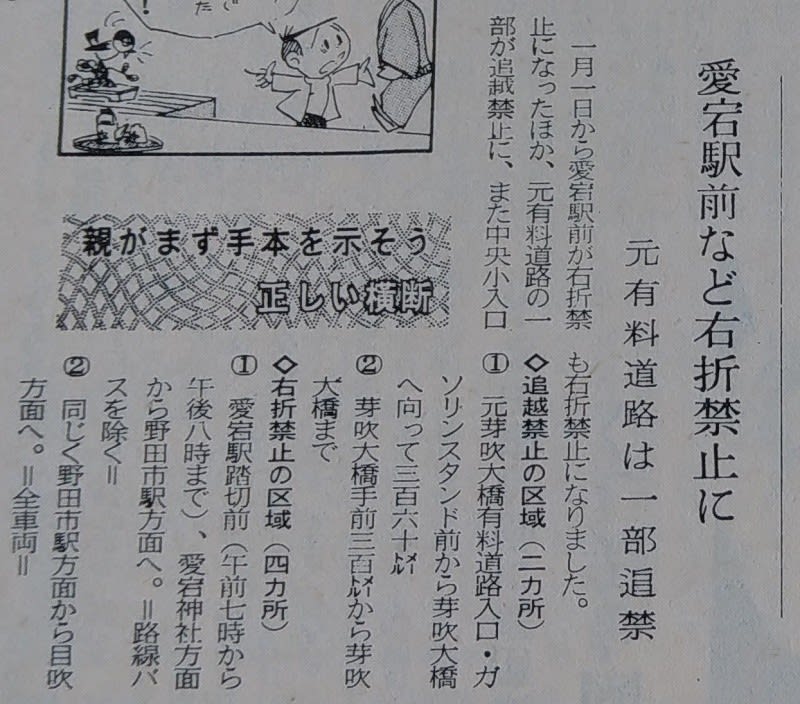 愛宕駅前など右折禁止に
元有料道路は一部追禁
一月一日から愛宕駅前が右折禁
止になったほか、元有料道路の一
部が追越禁止に、また中央小入口
も右折禁止になりました。
◇追越禁止の区域（二カ所）
① 元芽吹大橋有料道路入口・ガ
ソリンスタンド前から芽吹大橋
へ向って三百六十㍍
② 芽吹大橋手前三百㍍から芽吹
大橋まで
◇右折禁止の区域（四カ所）
① 愛宕駅踏切前（午前七時から
午後八時まで）、愛宕神社方面
から野田市駅方面へ。＝路線バ
スを除く＝
② 同じく野田市駅方面から目吹
方面へ。＝全車両＝
親がまず手本を示そう
正しい横断